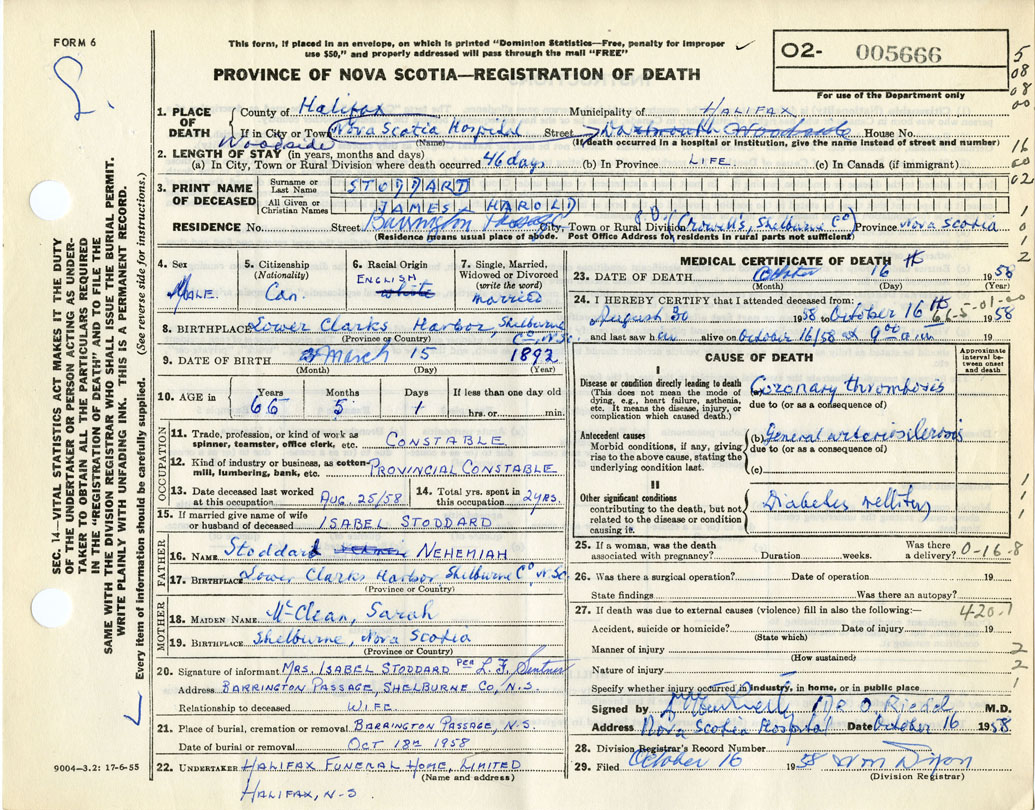 FORM 6
This form, if placed in an envelope, on which is printed "Dominion Statistics—Free, penalty for improper
use $50," and properly addressed will pass through the mail "FREE"
PROVINCE OF NOVA SCOTIA—REGISTRATION OF DEATH
O2- 005666
For use of the Department only
5
08
08
00
16
60
02
1. PLACE OF DEATH
County of Halifax Municipality of HALIFAX
If in City or Town Nova Scotia Hospital Street Dartmouth Woodside House No.
Woodside
(Name) (If death occurred in a hospital or institution, give the name instead of street and number)
2. LENGTH OF STAY (in years, months and days)
(a) In City, Town or Rural Division where death occurred 46 days (b) In Province LIFE (c) In Canada (if immigrant)
3. PRINT NAME OF DECEASED
Surname or Last Name STODDART
All Given or Christian Names JAMES HAROLD
RESIDENCE No. Street Barrington Passage City, Town or Rural Division P.O. (Crowell's, Shelburne Co) Province Nova Scotia
(Residence means usual place of abode. Post Office Address for residents in rural parts not sufficient)
4. Sex
MALE
5. Citizenship
(Nationality)
Can.
6. Racial Origin
ENGLISH
white
7. Single, Married,
Widowed or Divorced
(write the word)
married
8. BIRTHPLACE Lower Clarks Harbor, Shelburne Co, N.Sc.
(Province or Country)
9. DATE OF BIRTH March 15 1892
(Month) (Day) (Year)
10. AGE in
Years 66
Months 5
Days 1
If less than one day old
hrs. or min.
OCCUPATION
11. Trade, profession, or kind of work as
spinner, teamster, office clerk, etc. CONSTABLE
12. Kind of industry or business, as cotton-
mill, lumbering, bank, etc. PROVINCIAL CONSTABLE
13. Date deceased last worked
at this occupation AUG. 25/58
14. Total yrs. spent in
this occupation 2 YRS.
15. If married give name of wife
or husband of deceased ISABEL STODDARD
FATHER
16. NAME Stoddard NEHEMIAH
17. BIRTHPLACE Lower Clarks Harbor Shelburne Co, N.Sc.
(Province or Country)
MOTHER
18. MAIDEN NAME McClean, Sarah
19. BIRTHPLACE Shelburne, Nova Scotia
(Province or Country)
20. Signature of informant MRS. ISABEL STODDARD PER L. F.
Address BARRINGTON PASSAGE, SHELBURNE CO, N.S.
Relationship to deceased WIFE
21. Place of burial, cremation or removal BARRINGTON PASSAGE, N.S.
Date of burial or removal OCT 18TH 1958
22. UNDERTAKER HALIFAX FUNERAL HOME, LIMITED
(Name and address)
HALIFAX, N.S.
MEDICAL CERTIFICATE OF DEATH
23. DATE OF DEATH October 16th 1958
(Month) (Day) (Year)
24. I HEREBY CERTIFY that I attended deceased from:
August 30 1958 to October 16th 1958
66-5-01-00
and last saw h alive on October 16/58 at 9:00 a.m
CAUSE OF DEATH
Approximate interval between onset and death
I
Disease or condition directly leading to death
(This does not mean the mode of
dying, e.g., heart failure, asthenia,
etc. It means the disease, injury, or
complication which caused death.)
Coronary thrombosis
due to (or as a consequence of)
Antecedent causes
Morbid conditions, if any, giving
rise to the above cause, stating the
underlying condition last.
(b) General arteriosclerosis
due to (or as a consequence of)
(c)
II
Other significant conditions
contributing to the death, but not
related to the disease or condition
causing it.
Diabetes mellitus
25. If a woman, was the death
associated with pregnancy? Duration weeks. Was there
a delivery? 0-16-8
26. Was there a surgical operation? Date of operation 19
State findings Was there an autopsy?
27. If death was due to external causes (violence) fill in also the following:— 420.1
Accident, suicide or homicide? Date of injury 19
(State which)
Manner of injury
(How sustained)
Nature of injury
Specify whether injury occurred in industry, in home, or in public place
Signed by Dr O. Riedel M.D.
Address Nova Scotia Hospital Date October 16 1958
28. Division Registrar's Record Number
29. Filed October 16 1958 Wm Dixon
(Division Registrar)
SEC. 14—VITAL STATISTICS ACT MAKES IT THE DUTY
OF THE UNDERTAKER OR PERSON ACTING AS UNDER-
TAKER TO OBTAIN ALL THE PARTICULARS REQUIRED
IN THE "REGISTRATION OF DEATH" AND TO FILE THE
SAME WITH THE DIVISION REGISTRAR WHO SHALL ISSUE THE BURIAL PERMIT.
WRITE PLAINLY WITH UNFADING INK. THIS IS A PERMANENT RECORD.
Every item of information should be carefully supplied. (See reverse side for instructions.)
9004—3.2: 17-6-55